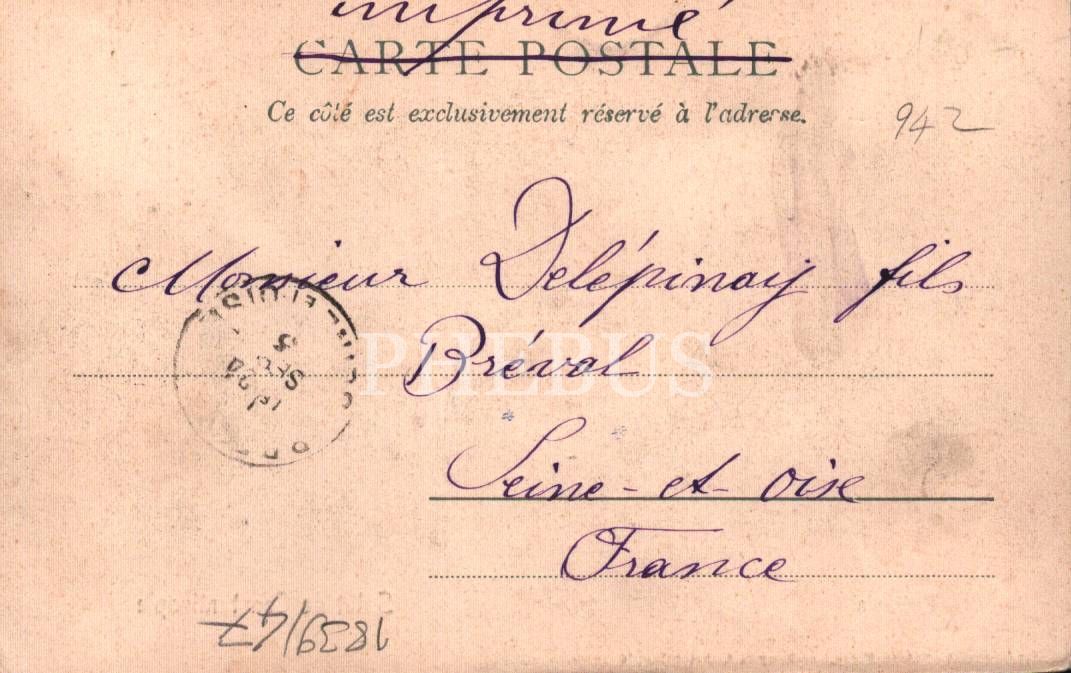 imprimé
CARTE POSTALE
Ce côté est exclusivement réservé à l'adresse.
942
Monsieur Delépinay fils
Bréval
Seine-et-Oise
France
PHEBUS
SEP 5
1839/47